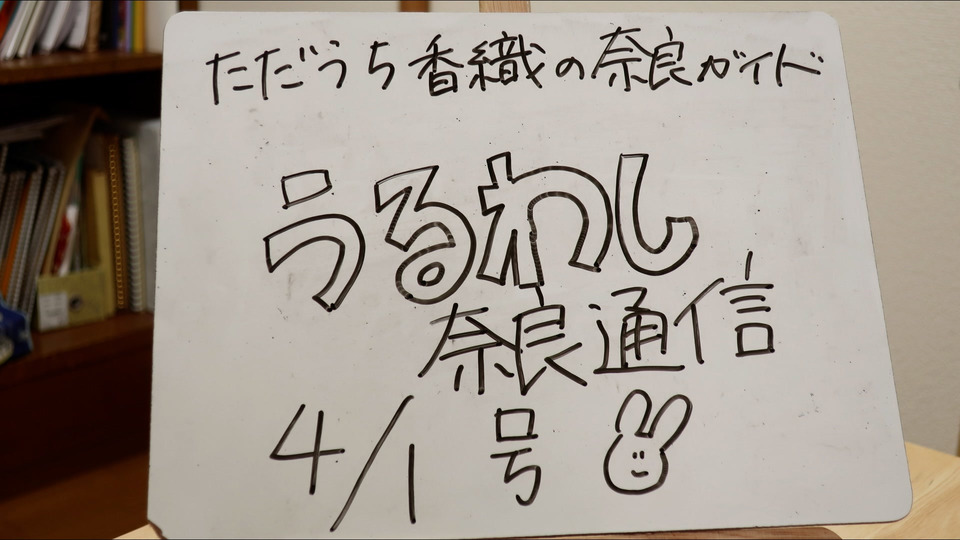 ただうち香織の奈良ガイド
うるわし
奈良通信
4/1号